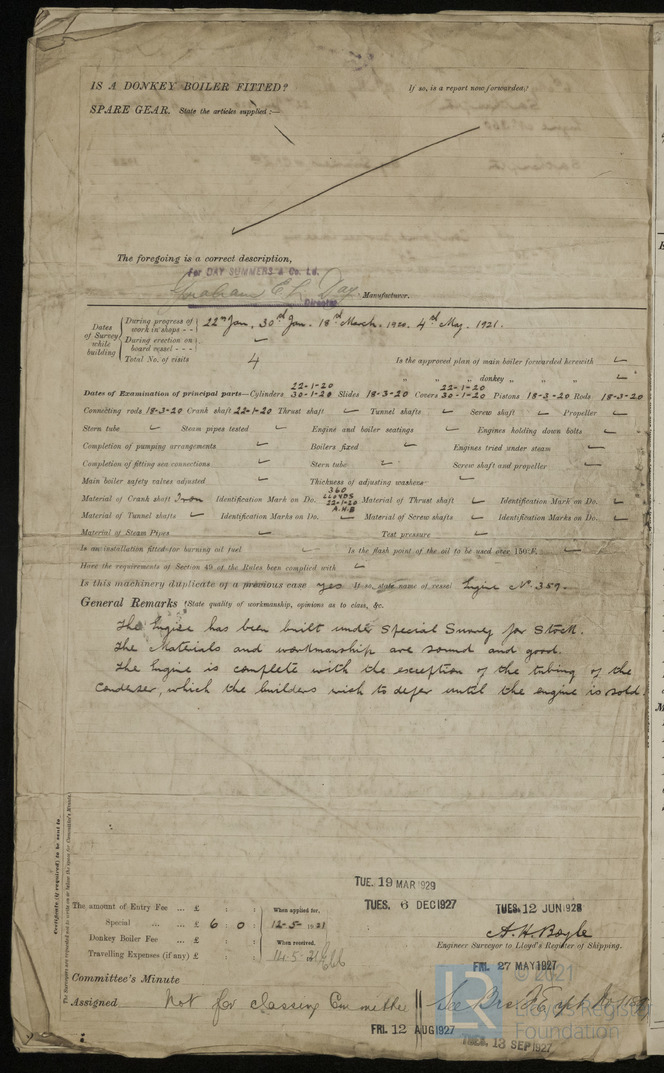 IS A DONKEY BOILER FITTED? If so, is a report now forwarded?
SPARE GEAR. State the articles supplied:—
The foregoing is a correct description,
For DAY SUMMERS & Co. Ld.
Graham E. L. Day. Manufacturer.
Director
Dates of Survey while building
During progress of work in shops - - 22nd Jan, 30th Jan. 18th March. 1920. 4th May. 1921.
During erection on board vessel - - -
Total No. of visits 4 Is the approved plan of main boiler forwarded herewith
" " donkey " " "
Dates of Examination of principal parts—Cylinders 22-1-20 30-1-20 Slides 18-3-20 Covers 22-1-20 30-1-20 Pistons 18-3-20 Rods 18-3-20
Connecting rods 18-3-20 Crank shaft 22-1-20 Thrust shaft Tunnel shafts Screw shaft Propeller
Stern tube Steam pipes tested Engine and boiler seatings Engines holding down bolts
Completion of pumping arrangements Boilers fixed Engines tried under steam
Completion of fitting sea connections Stern tube Screw shaft and propeller
Main boiler safety valves adjusted Thickness of adjusting washers
Material of Crank shaft Iron Identification Mark on Do. 360 LLOYDS 22-1-20 A.H.B Material of Thrust shaft Identification Mark on Do.
Material of Tunnel shafts Identification Marks on Do. Material of Screw shafts Identification Marks on Do.
Material of Steam Pipes Test pressure
Is an installation fitted for burning oil fuel Is the flash point of the oil to be used over 150°F.
Have the requirements of Section 49 of the Rules been complied with
Is this machinery duplicate of a previous case yes If so, state name of vessel Engine No. 359.
General Remarks (State quality of workmanship, opinions as to class, &c.
The Engine has been built under Special Survey for Stock.
The Materials and workmanship are sound and good.
The Engine is complete with the exception of the tubing of the
Condenser, which the builders wish to defer until the engine is sold.
Certificate (if required) to be sent to
The Surveyors are requested not to write on or below the space for Committee's Minute.
TUE. 19 MAR 1929
TUES. 6 DEC 1927 TUES. 12 JUN 1928
The amount of Entry Fee ... £ : : When applied for,
Special ... ... £ 6 : 0 : 12-5-1921
Donkey Boiler Fee ... £ : : When received,
Travelling Expenses (if any) £ : : 14.5.21
A. H. Boyle
Engineer Surveyor to Lloyd's Register of Shipping.
FRI. 27 MAY 1927
Committee's Minute
Assigned Not for classing Committee See
FRI. 12 AUG 1927
TUES. 13 SEP 1927
© 2021
Lloyd's Register
Foundation
LR